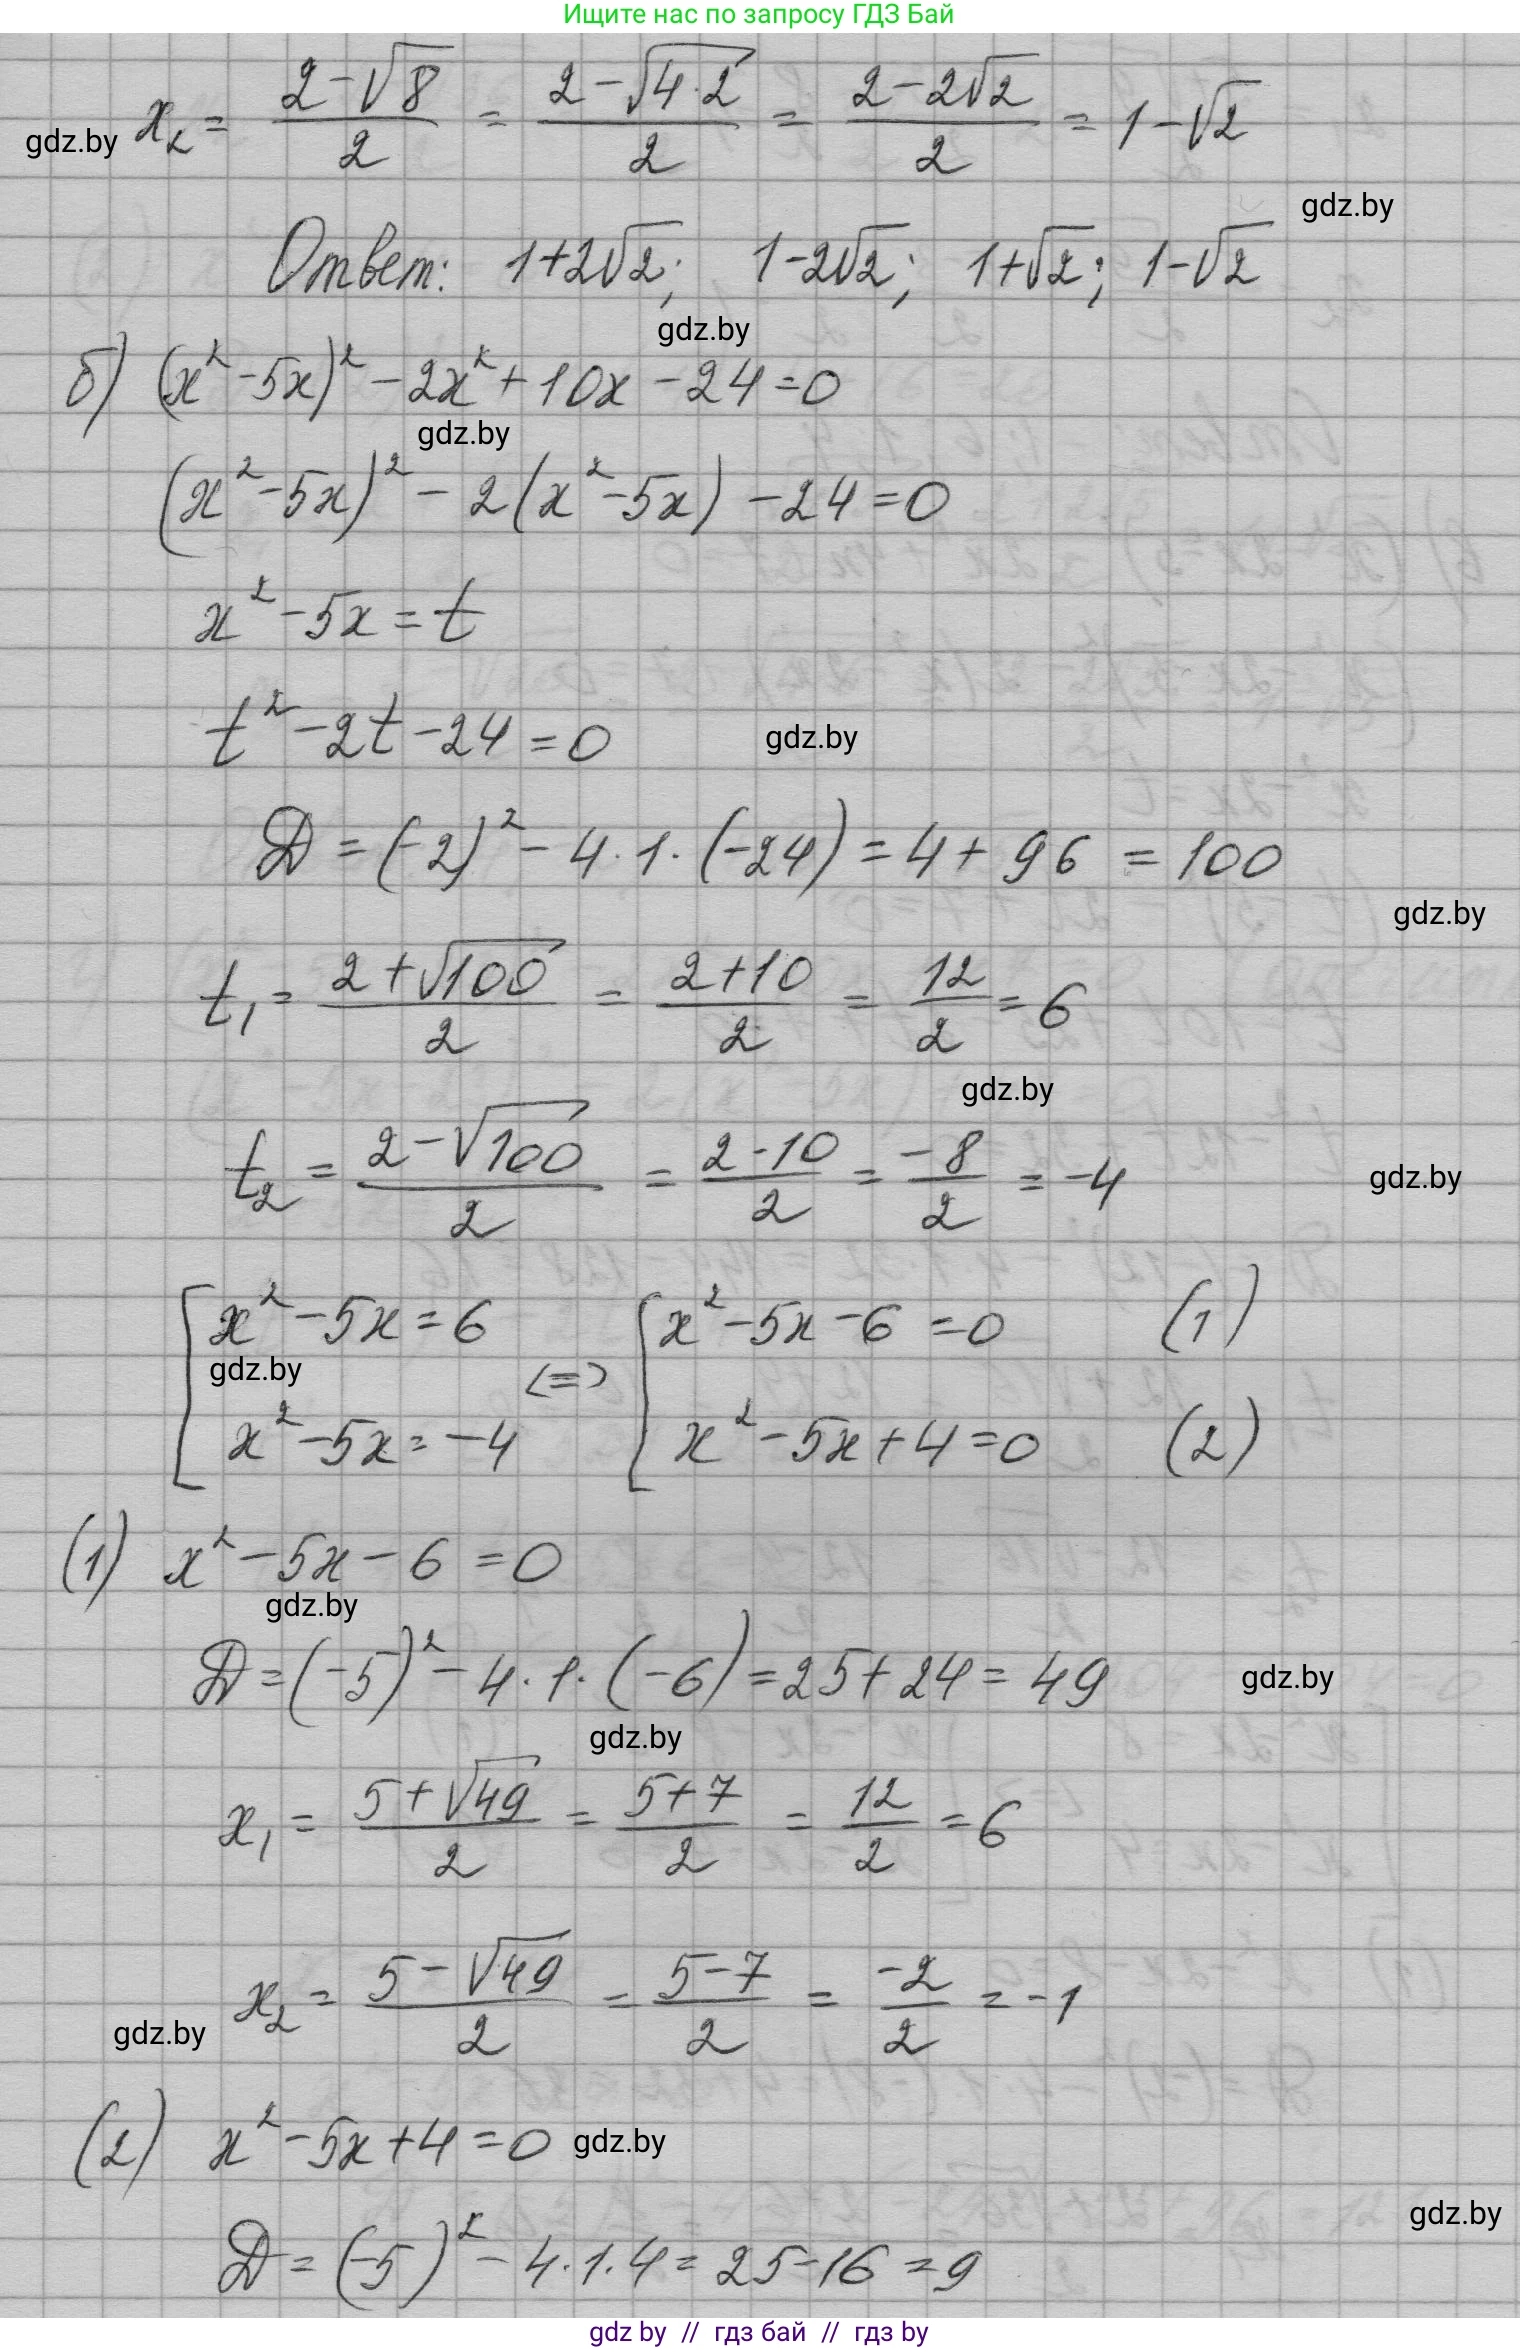 Ищите нас по запросу ГДЗ Бай
x₂ = (2-√8)/2 = (2-√(4·2))/2 = (2-2√2)/2 = 1-√2
gdz.by
gdz.by
Ответ: 1+2√2; 1-2√2; 1+√2; 1-√2
gdz.by
б) (x²-5x)² - 2x² + 10x - 24 = 0
gdz.by
(x²-5x)² - 2(x²-5x) - 24 = 0
x² - 5x = t
t² - 2t - 24 = 0
gdz.by
D = (-2)² - 4·1·(-24) = 4 + 96 = 100
gdz.by
t₁ = (2+√100)/2 = (2+10)/2 = 12/2 = 6
gdz.by
t₂ = (2-√100)/2 = (2-10)/2 = -8/2 = -4
gdz.by
[ x² - 5x = 6 <=> [ x² - 5x - 6 = 0 (1)
gdz.by
x² - 5x = -4 x² - 5x + 4 = 0 (2)
(1) x² - 5x - 6 = 0
gdz.by
D = (-5)² - 4·1·(-6) = 25 + 24 = 49
gdz.by
gdz.by
x₁ = (5+√49)/2 = (5+7)/2 = 12/2 = 6
x₂ = (5-√49)/2 = (5-7)/2 = -2/2 = -1
gdz.by
(2) x² - 5x + 4 = 0
gdz.by
gdz.by
D = (-5)² - 4·1·4 = 25 - 16 = 9
gdz by // гдз бай // гдз by